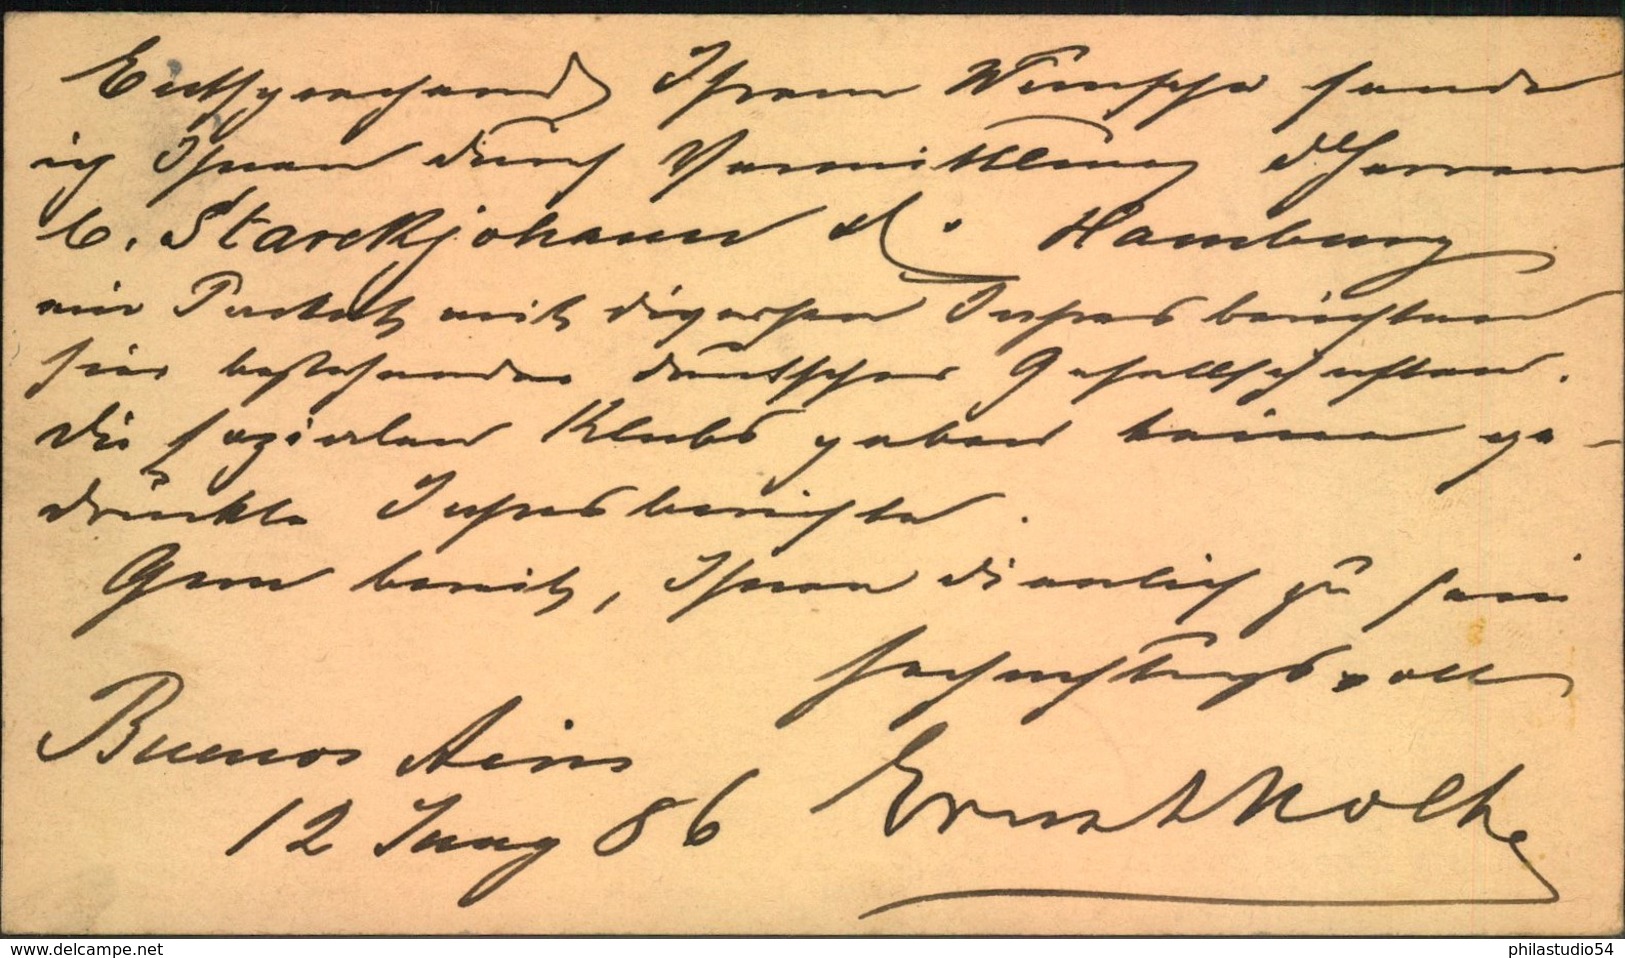 Entsprechend Ihrem Wunsche sende
ich Ihnen durch Vermittlung d Herren
C. Starckjohann & Co. Hamburg
ein Packet mit diversen Jahresberichten
hier bestehender deutscher Gesellschaften.
Die sozialen Klubs geben keine ge-
druckte Jahresberichte.
Gern bereit, Ihnen dienlich zu sein
hochachtungsvoll
Buenos Aires
12 Juny 86
Ernst Nolte
www.delcampe.net
philastudio54